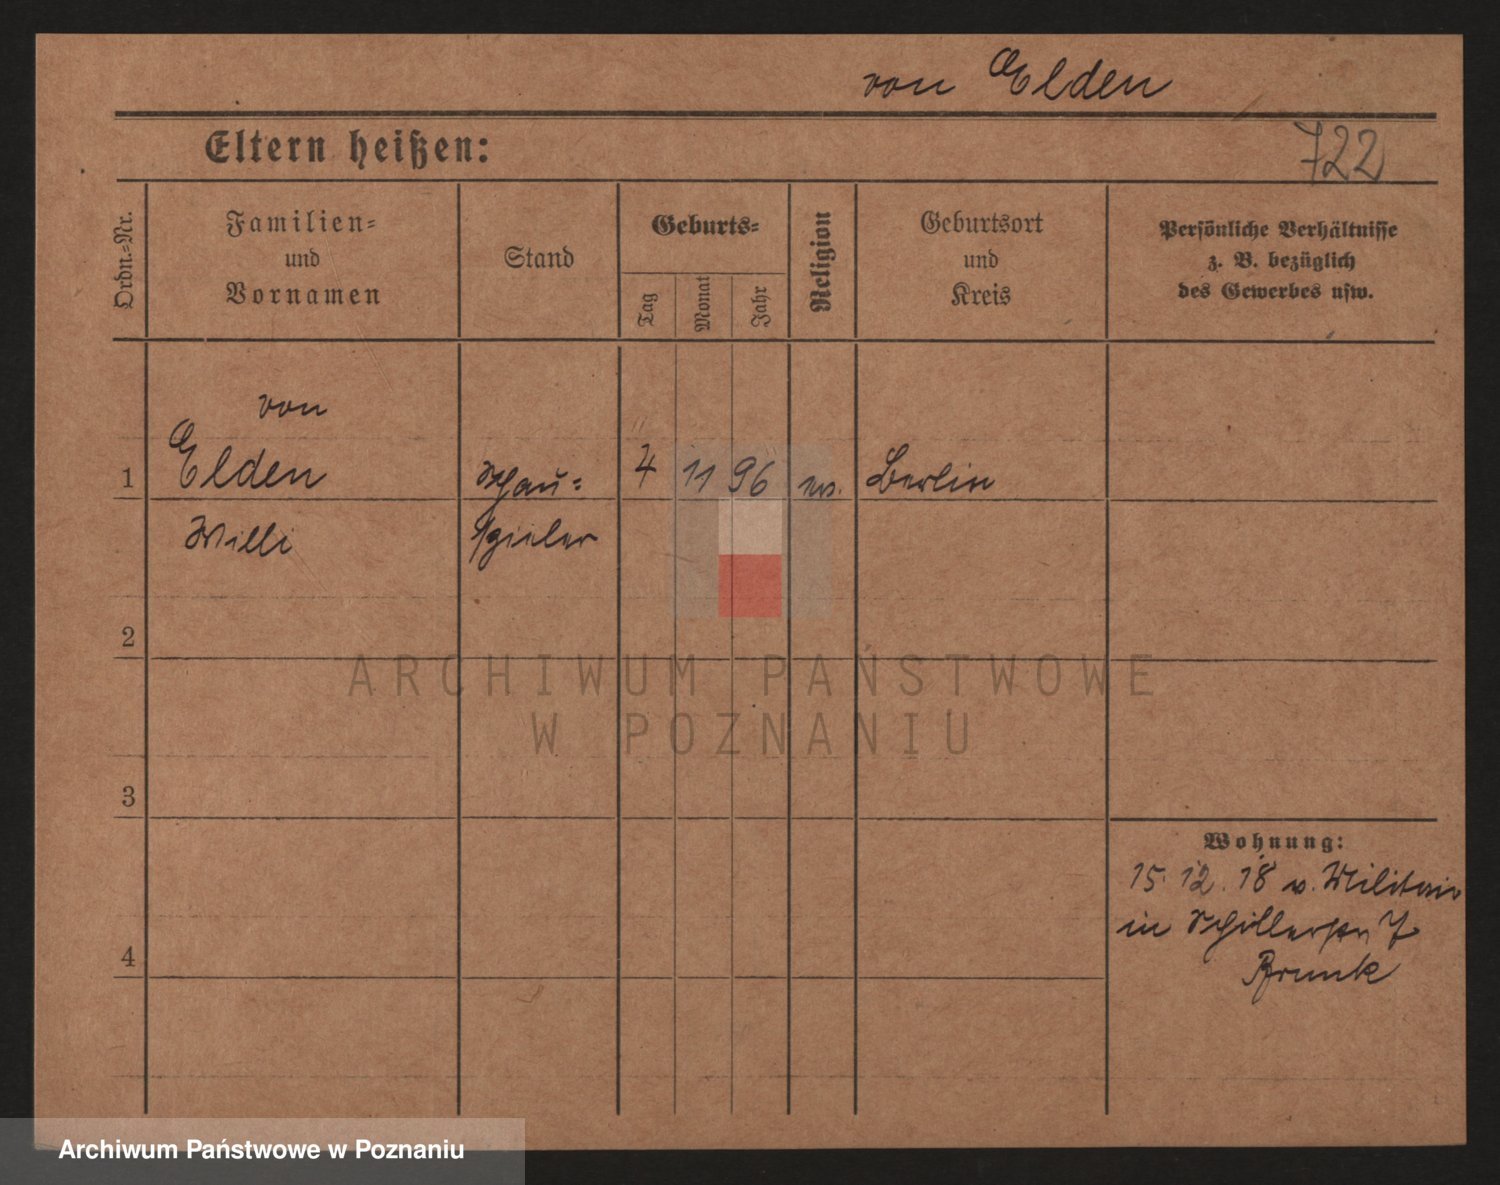 von Elden
Eltern heißen:
722
Ordn.-Nr.
Familien-
und
Vornamen
Stand
Geburts-
Tag
Monat
Jahr
Religion
Geburtsort
und
Kreis
Persönliche Verhältnisse
z. B. bezüglich
des Gewerbes usw.
von
1 Elden Schau- 4 11 96 Berlin
Willi spieler
2
3
4
Wohnung:
15. 12. 18 v. Militär
in Schillerstr 7
ARCHIWUM PAŃSTWOWE
W POZNANIU
Archiwum Państwowe w Poznaniu